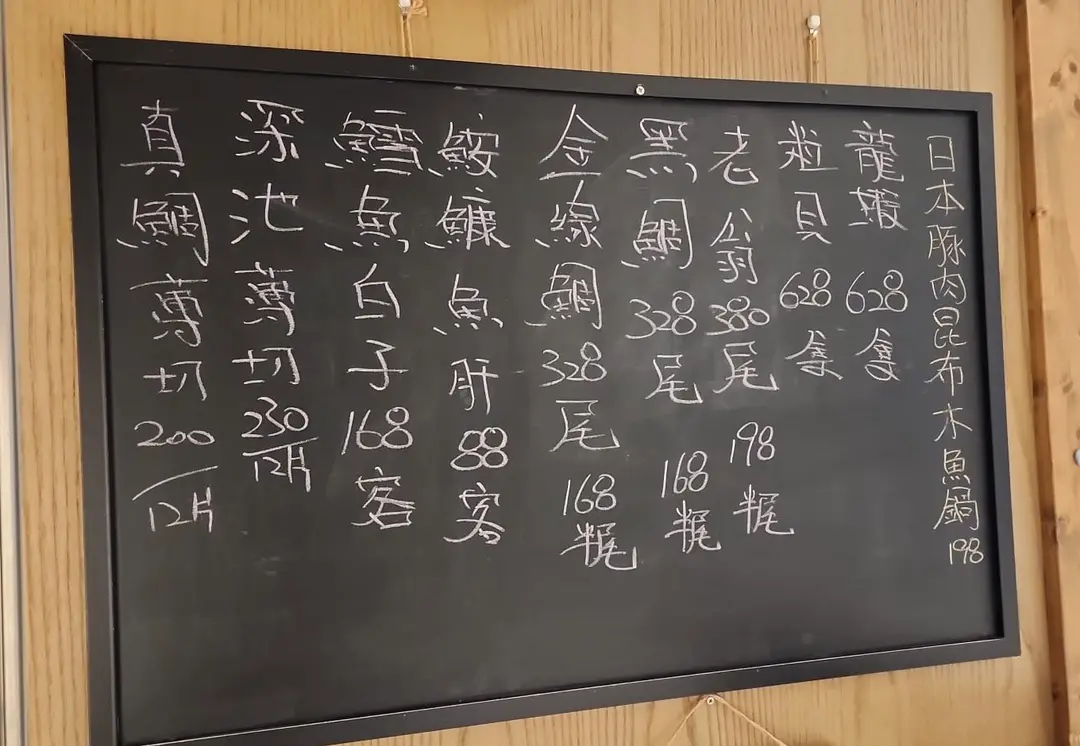 日本豚肉昆布木魚鍋198
龍蝦628隻
粒貝628隻
老公翁380尾 198半尾
黑鯛328尾 168半尾
金線鯛328尾 168半尾
鮟鱇魚肝88客
鱈魚白子168客
深池薄切230/12片
真鯛薄切200/12片